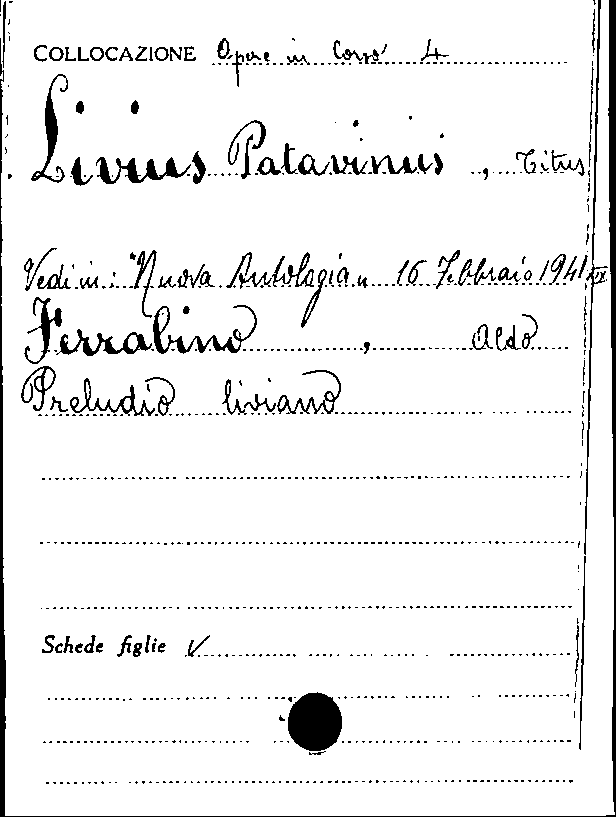 COLLOCAZIONE Opere in Corso 4
Livius Patavinus, Titus
Vedi in: "Nuova Antologia" 16 Febbraio 1941 XIX
Ferrabino, Aldo
Preludio liviano
Schede figlie V